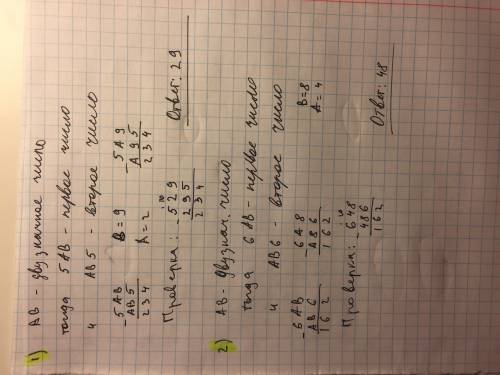 1) AB - двузначное число
тогда 5AB - первое число
и AB5 - второе число
- 5AB
AB5
234
B = 9
A = 2
- 5A9
A95
234
Проверка: - 529
295
234
Ответ: 29
2) AB - двузнач. число
тогда 6AB - первое число
и AB6 - второе число
- 6AB
AB6
162
- 6A8
A86
162
B = 8
A = 4
Проверка: - 648
486
162
Ответ: 48